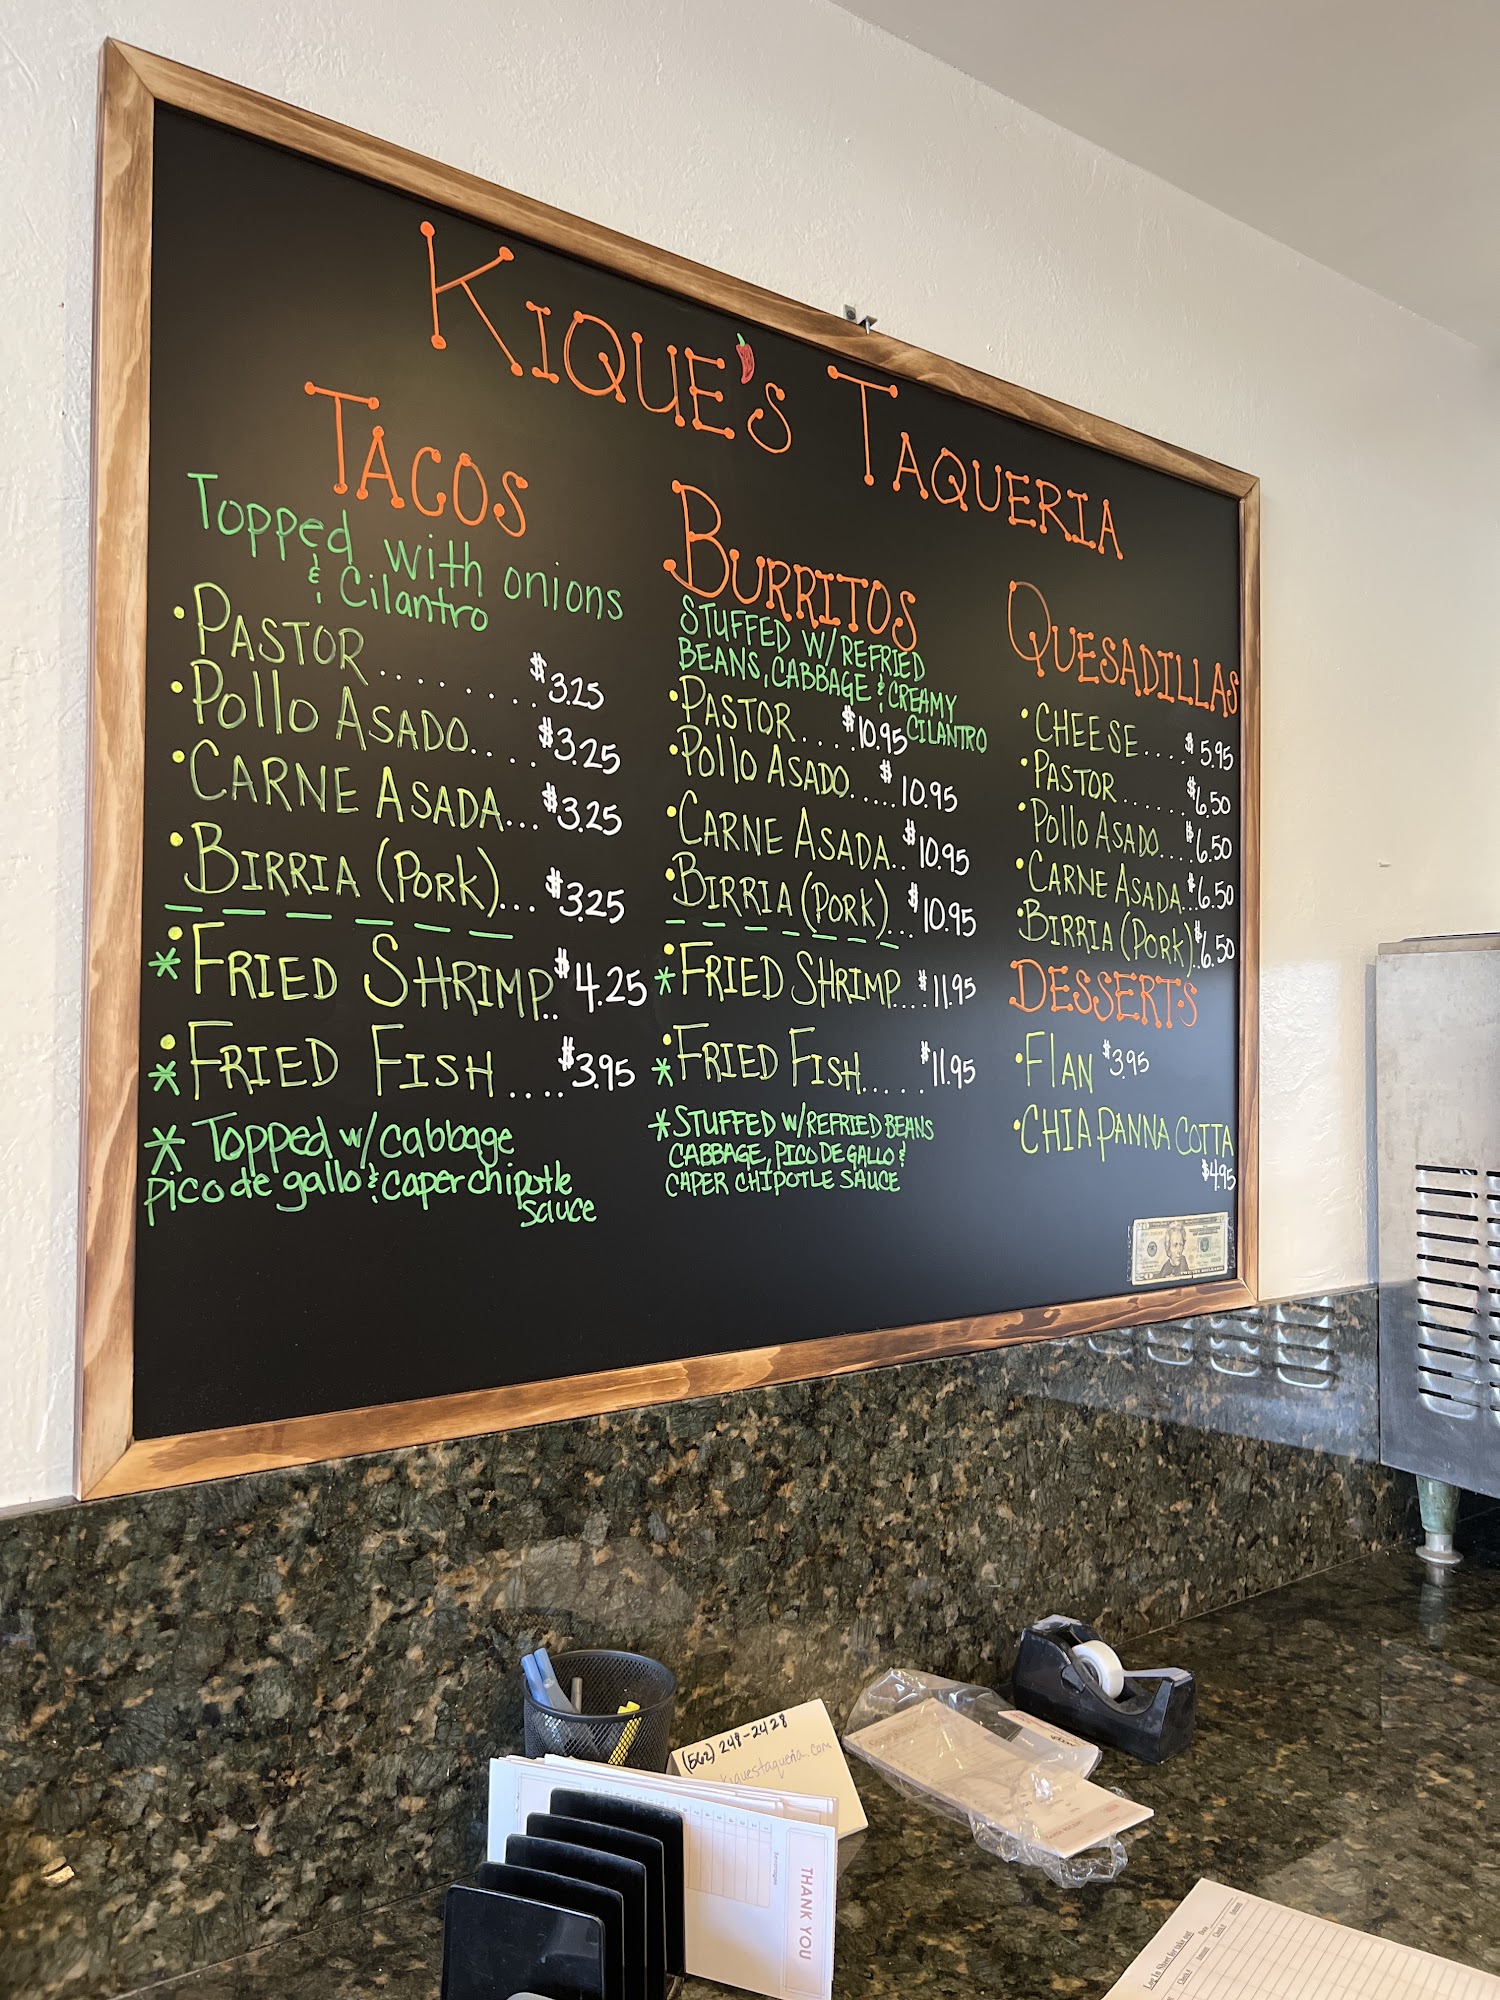 KIQUE'S TAQUERIA
TACOS
Topped with onions
& Cilantro
• PASTOR........ $3.25
• Pollo ASADO.... $3.25
• CARNE ASADA... $3.25
• BIRRIA (PORK)... $3.25
* • FRIED SHRIMP.. $4.25
* • FRIED FISH.... $3.95
* Topped w/ cabbage
pico de gallo & caper chipotle
sauce
BURRITOS
STUFFED W/ REFRIED
BEANS, CABBAGE & CREAMY
CILANTRO
• PASTOR.... $10.95
• Pollo ASADO..... $10.95
• CARNE ASADA.. $10.95
• BIRRIA (PORK)... $10.95
* • FRIED SHRIMP... $11.95
* • FRIED FISH..... $11.95
* STUFFED W/ REFRIED BEANS
CABBAGE, PICO DE GALLO &
CAPER CHIPOTLE SAUCE
QUESADILLAS
• CHEESE.... $5.95
• PASTOR...... $6.50
Pollo ASADO.... $6.50
• CARNE ASADA... $6.50
• BIRRIA (PORK).. $6.50
DESSERTS
• Flan $3.95
• CHIA PANNA COTTA
$4.95
20
(562) 249-2428
kiquestaqueria.com
THANK YOU
Log In Sheet for take out